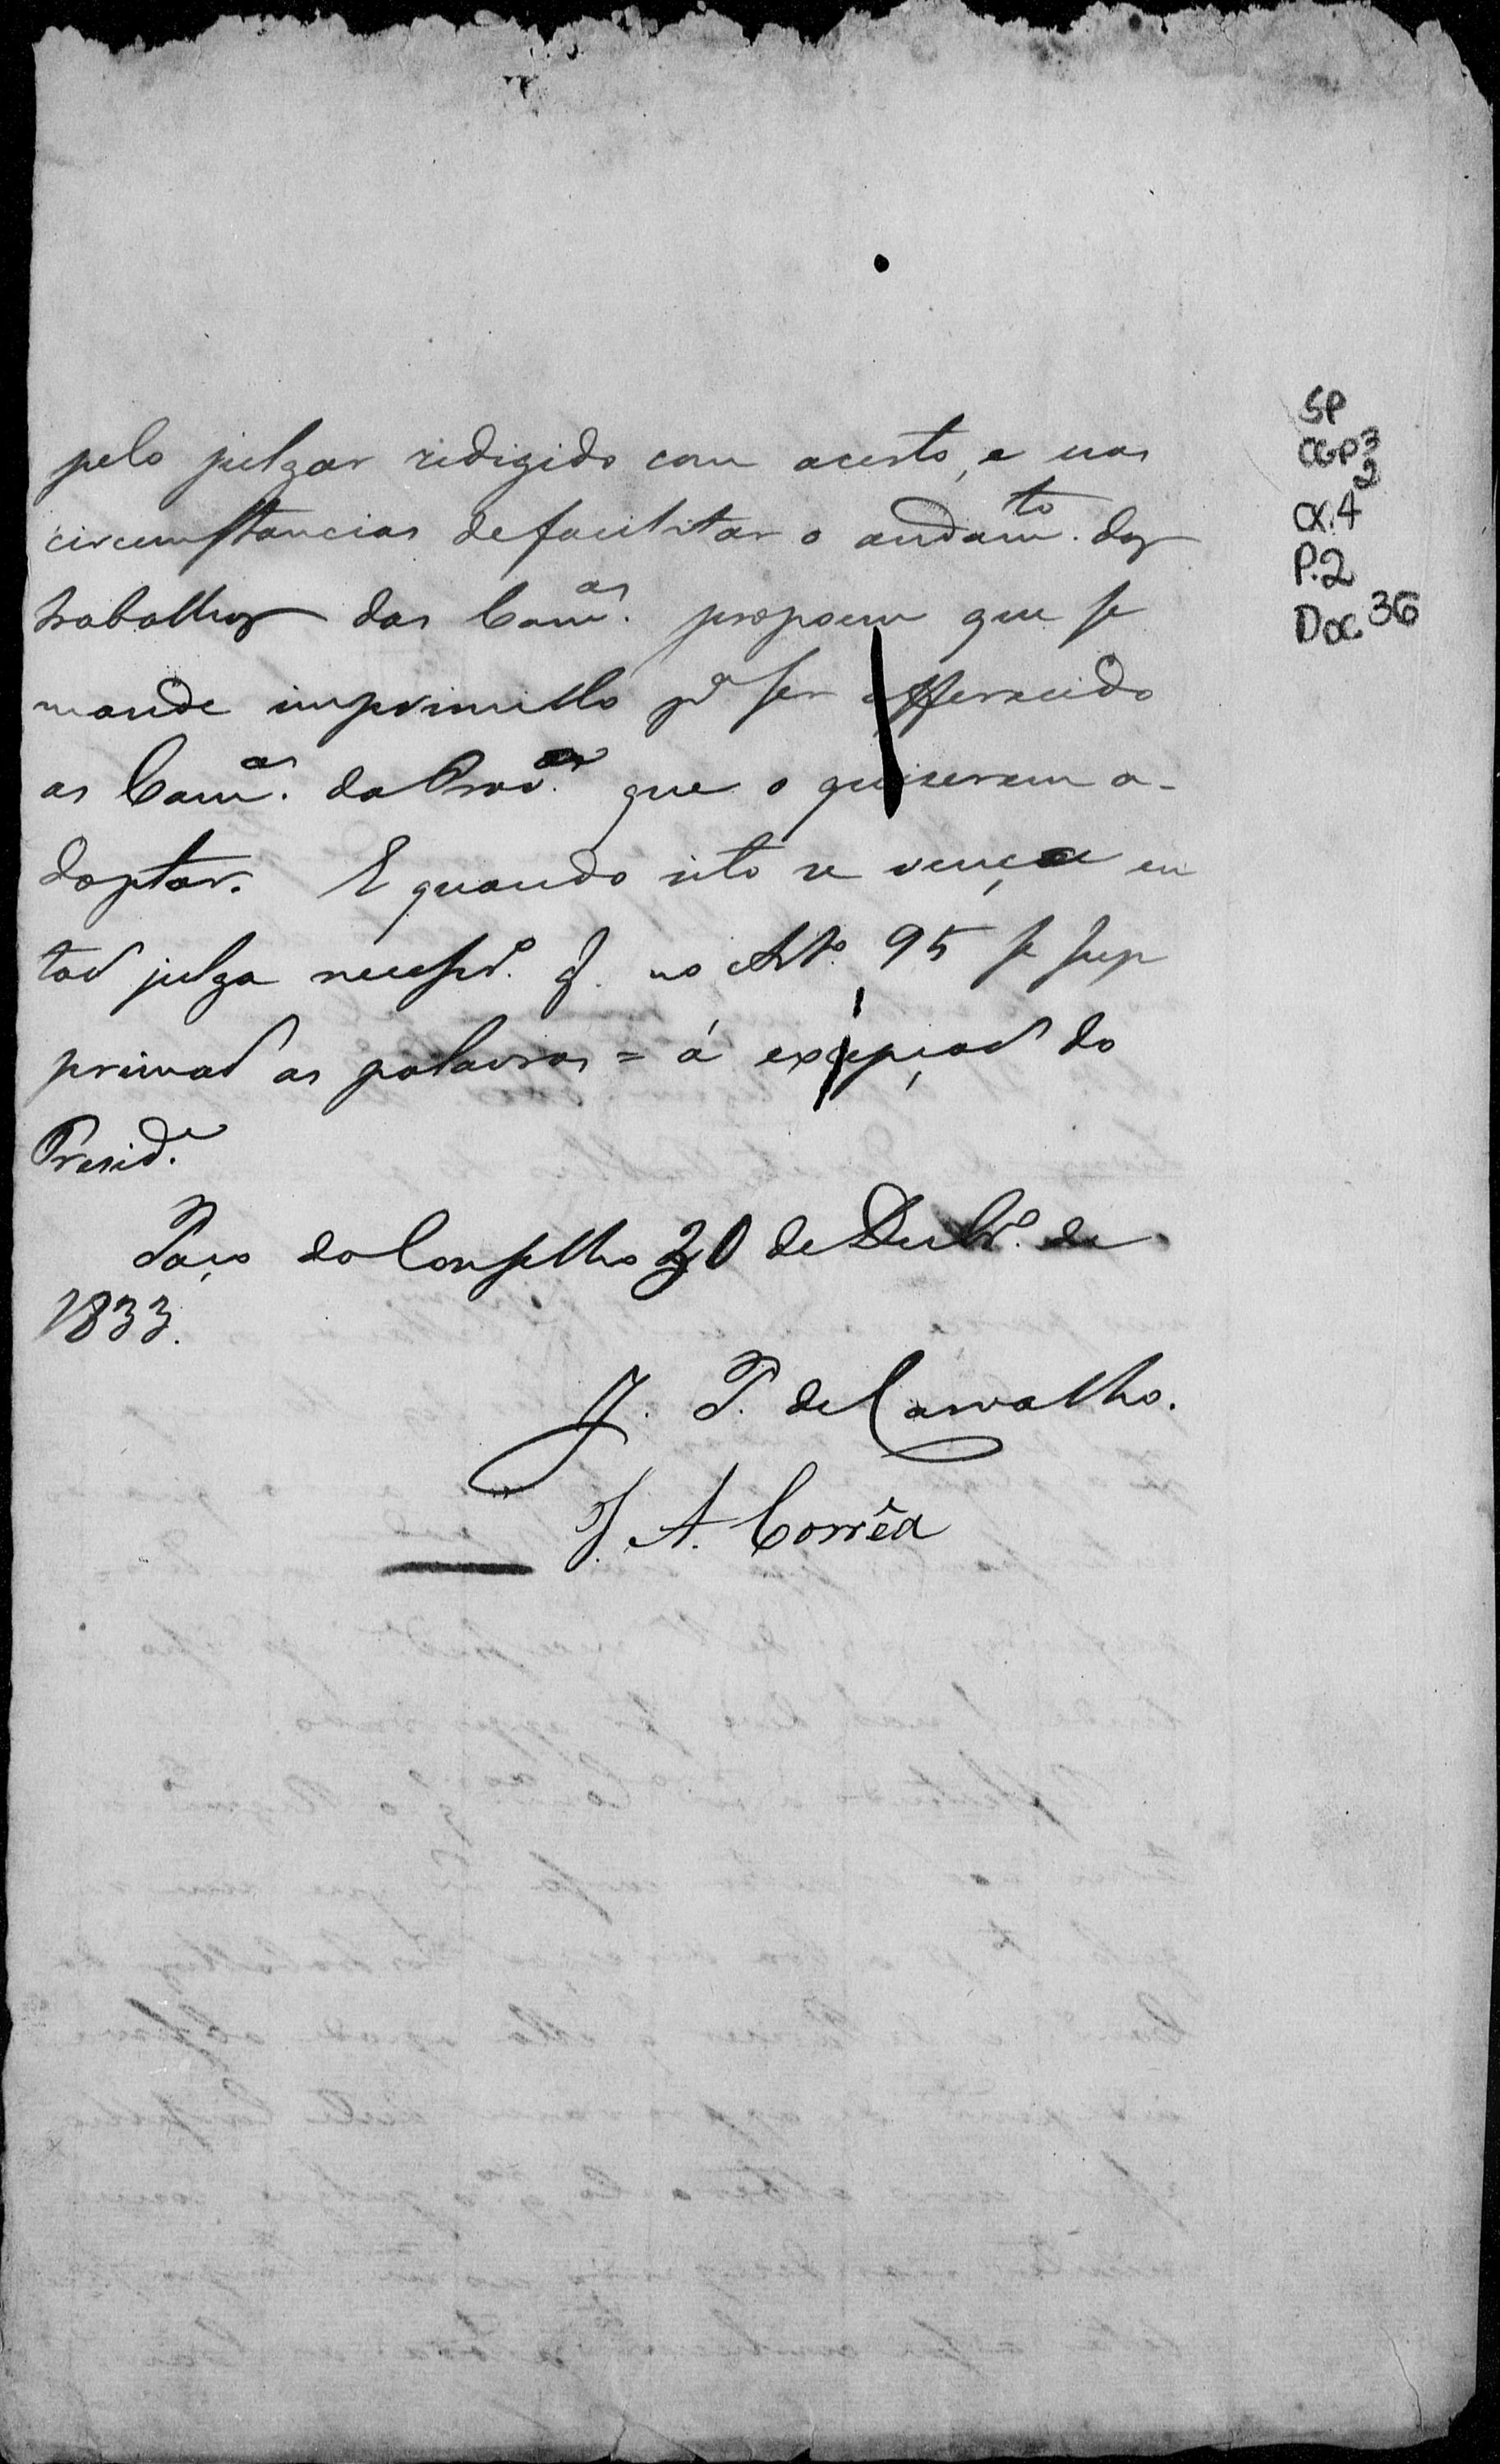 pelo julgar redigido com acerto, e nas
circumstancias de facilitar o andam.to dos
trabalhos das Cam.as propoem que se
mande imprimillo p.a ser offerecido
as Cam.as da Prov.a que o quiserem a-
doptar. E quando isto se vença en
taõ julga necessr.o q. no Art.o 95 se sup
primaõ as palavras = á excepçaõ do
Presid.e
Paço do Conselho 20 de Dezbr.o de
1833.
J. P. de Carvalho.
J. A. Corrêa
SP
CGP3
2
CX.4
P.2
Doc 36